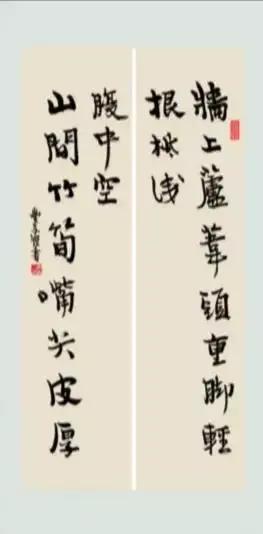 牆上蘆葦頭重脚輕
根柢浅
山間竹筍嘴尖皮厚
腹中空